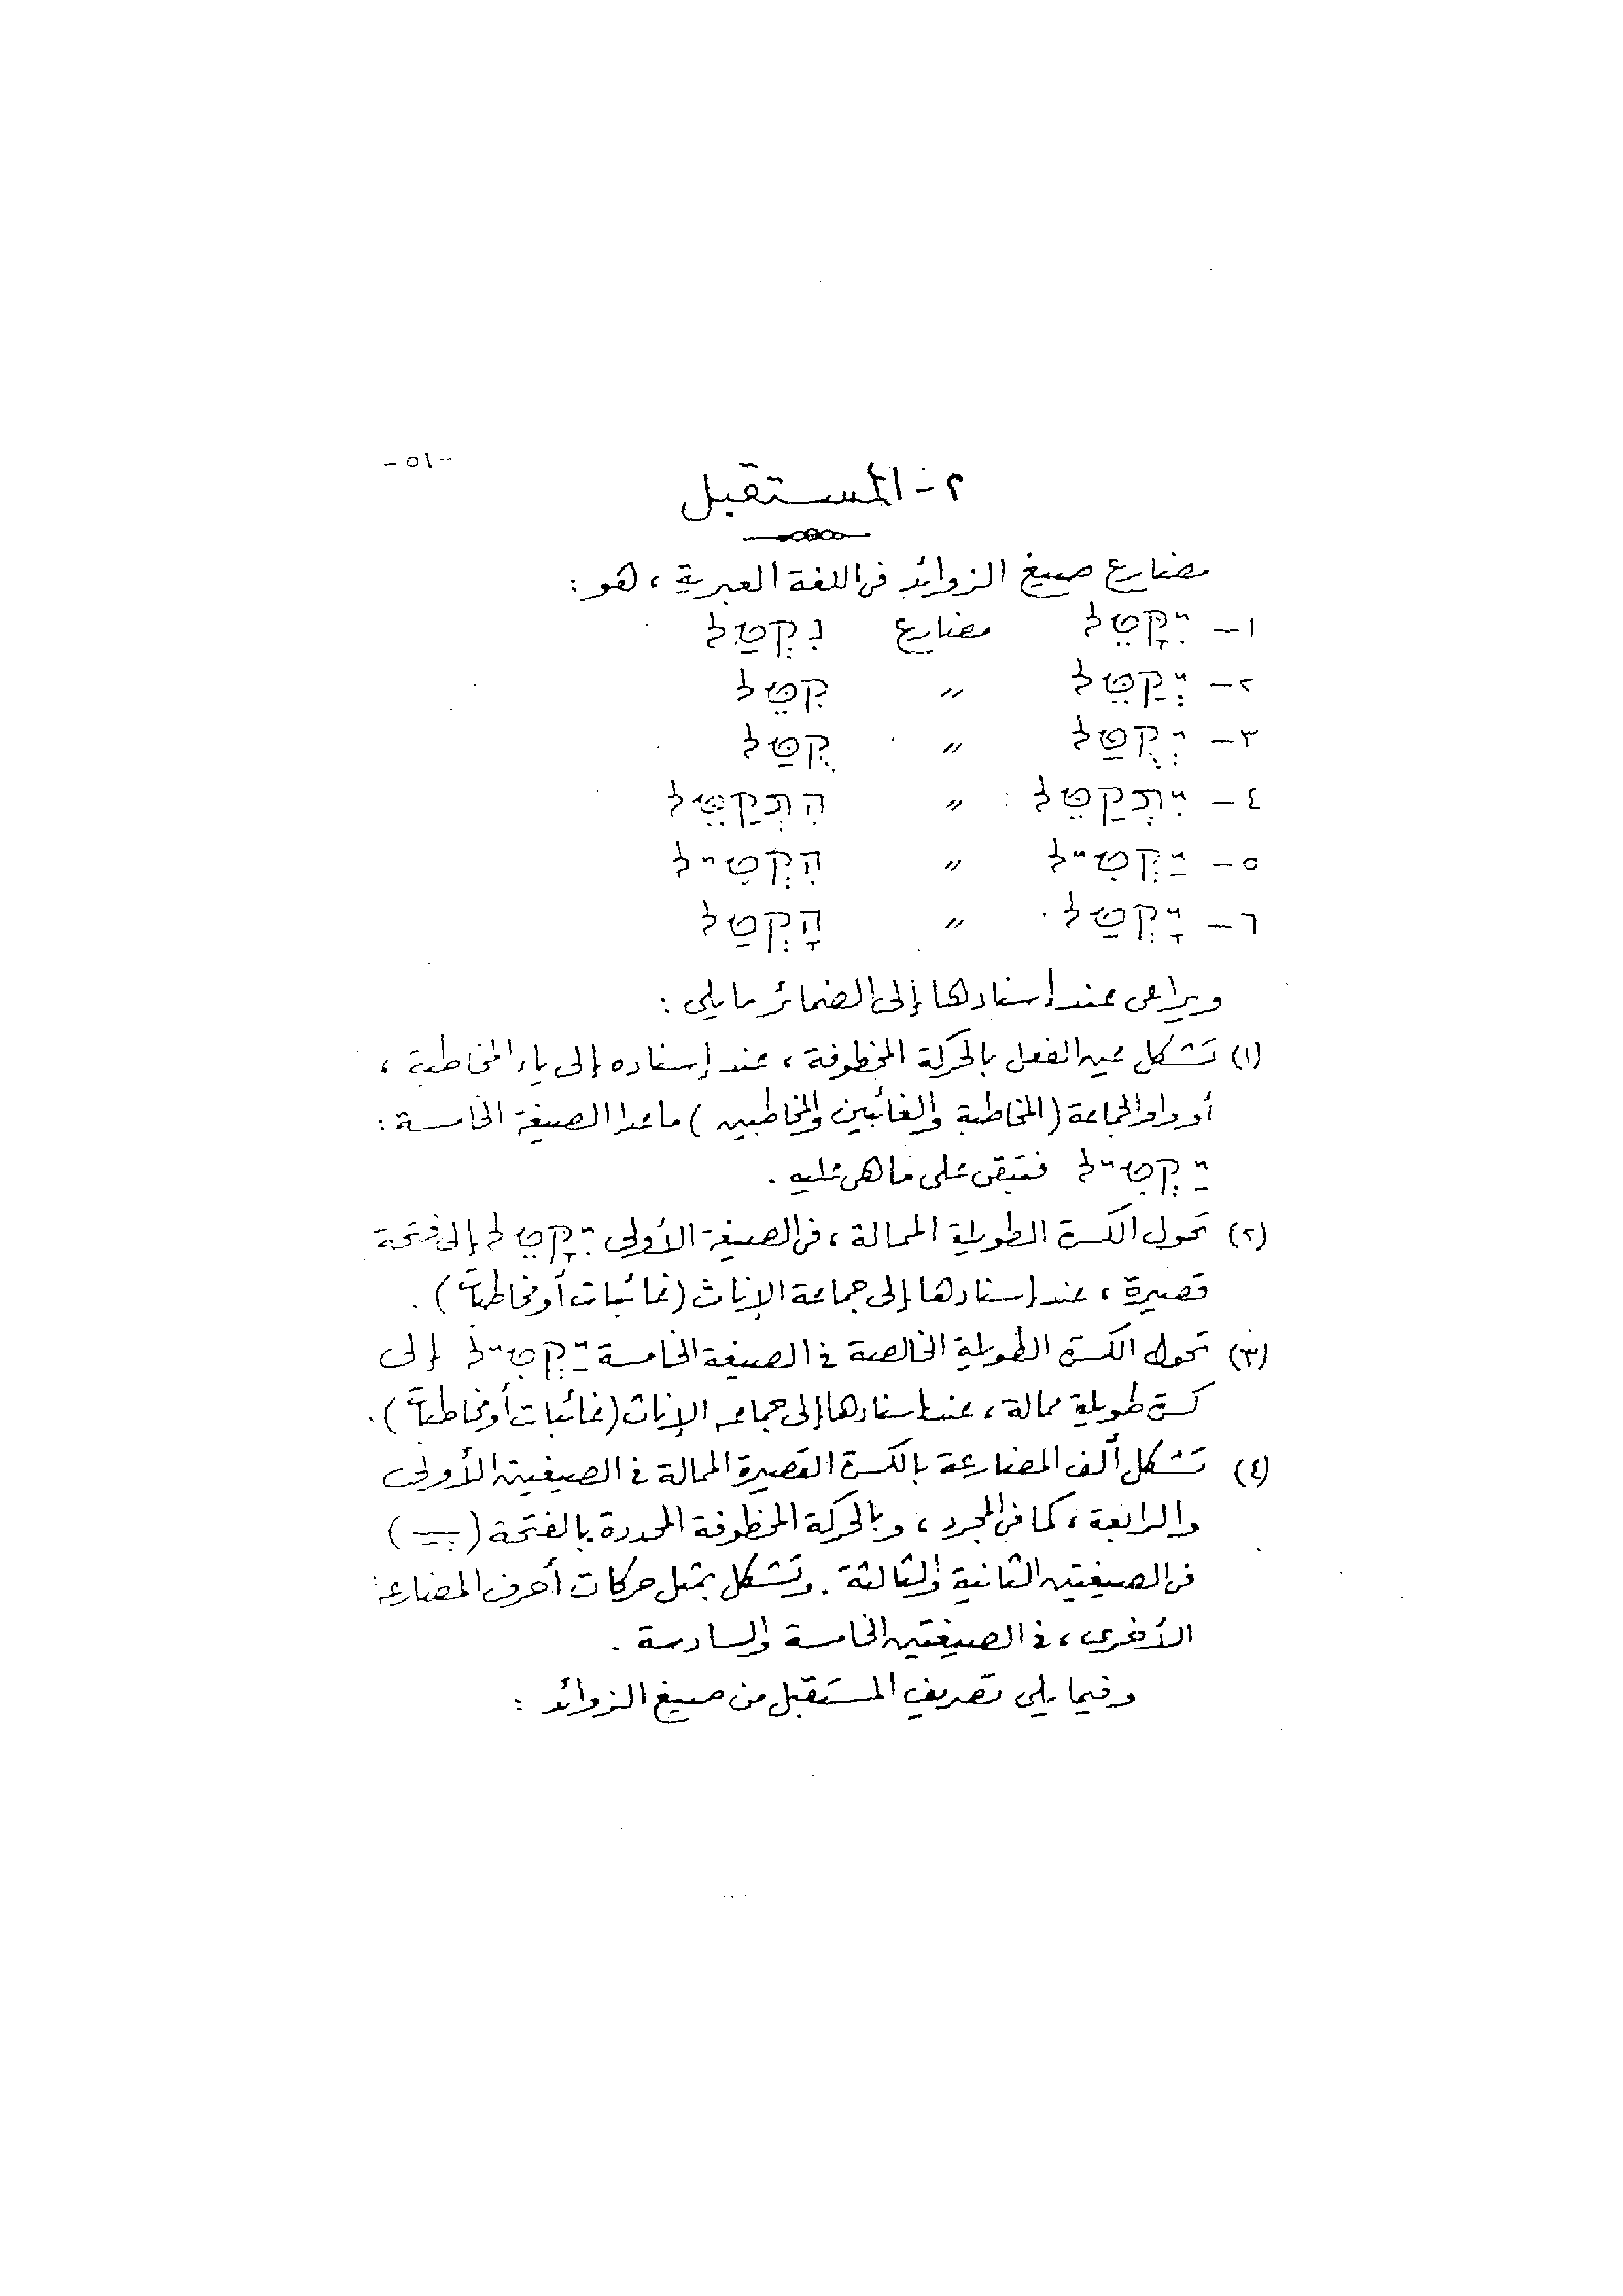 -٥١-
٢- المستقبل
مضارع صيغ الزوائد فى اللغة العبرية ، هو :
١- יִקָּטֵל مضارع נִקְטַל
٢- יְקַטֵּל " קִטֵּל
٣- יְקֻטַּל " קֻטַּל
٤- יִתְקַטֵּל " הִתְקַטֵּל
٥- יַקְטִיל " הִקְטִיל
٦- יָקְטַל " הָקְטַל
ويراعى عند إسنادها إلى الضمائر ما يلى :
(١) تشكل عين الفعل بالحركة المخطوفة ، عند إسناده إلى ياء المخاطبة ،
أو واو الجماعة ( المخاطبة والغائبين والمخاطبين ) ماعدا الصيغة الخامسة :
יַקְטִיל فتبقى على ما هى عليه .
(٢) تحول الكسرة الطويلة الممالة ، فى الصيغة الأولى יִקָּטֵל إلى فتحة
قصيرة ، عند إسنادها إلى جماعة الإناث ( غائبات أو مخاطبات ) .
(٣) تحول الكسرة الطويلة الخالصة فى الصيغة الخامسة יַקְטִיל إلى
كسرة طويلة ممالة ، عند اسنادها إلى جماعة الإناث ( غائبات أو مخاطبات ) .
(٤) تشكل ألف المضارعة بالكسرة القصيرة الممالة فى الصيغتين الأولى
والرابعة ، كما فى المجرد ، وبالحركة المخطوفة المحددة بالفتحة ( ֲ )
فى الصيغتين الثانية والثالثة . وتشكل بمثل حركات أحرف المضارعة
الأخرى ، فى الصيغتين الخامسة والسادسة .
وفيما يلى تصريف المستقبل من صيغ الزوائد :